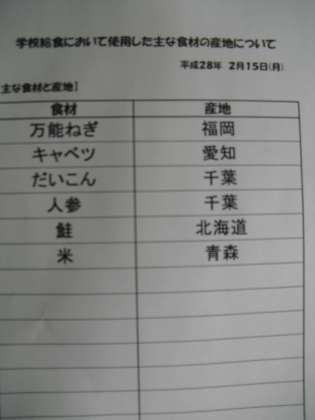 学校給食において使用した主な食材の産地について
平成28年 2月15日(月)
主な食材と産地】
食材 産地
万能ねぎ 福岡
キャベツ 愛知
だいこん 千葉
人参 千葉
鮭 北海道
米 青森